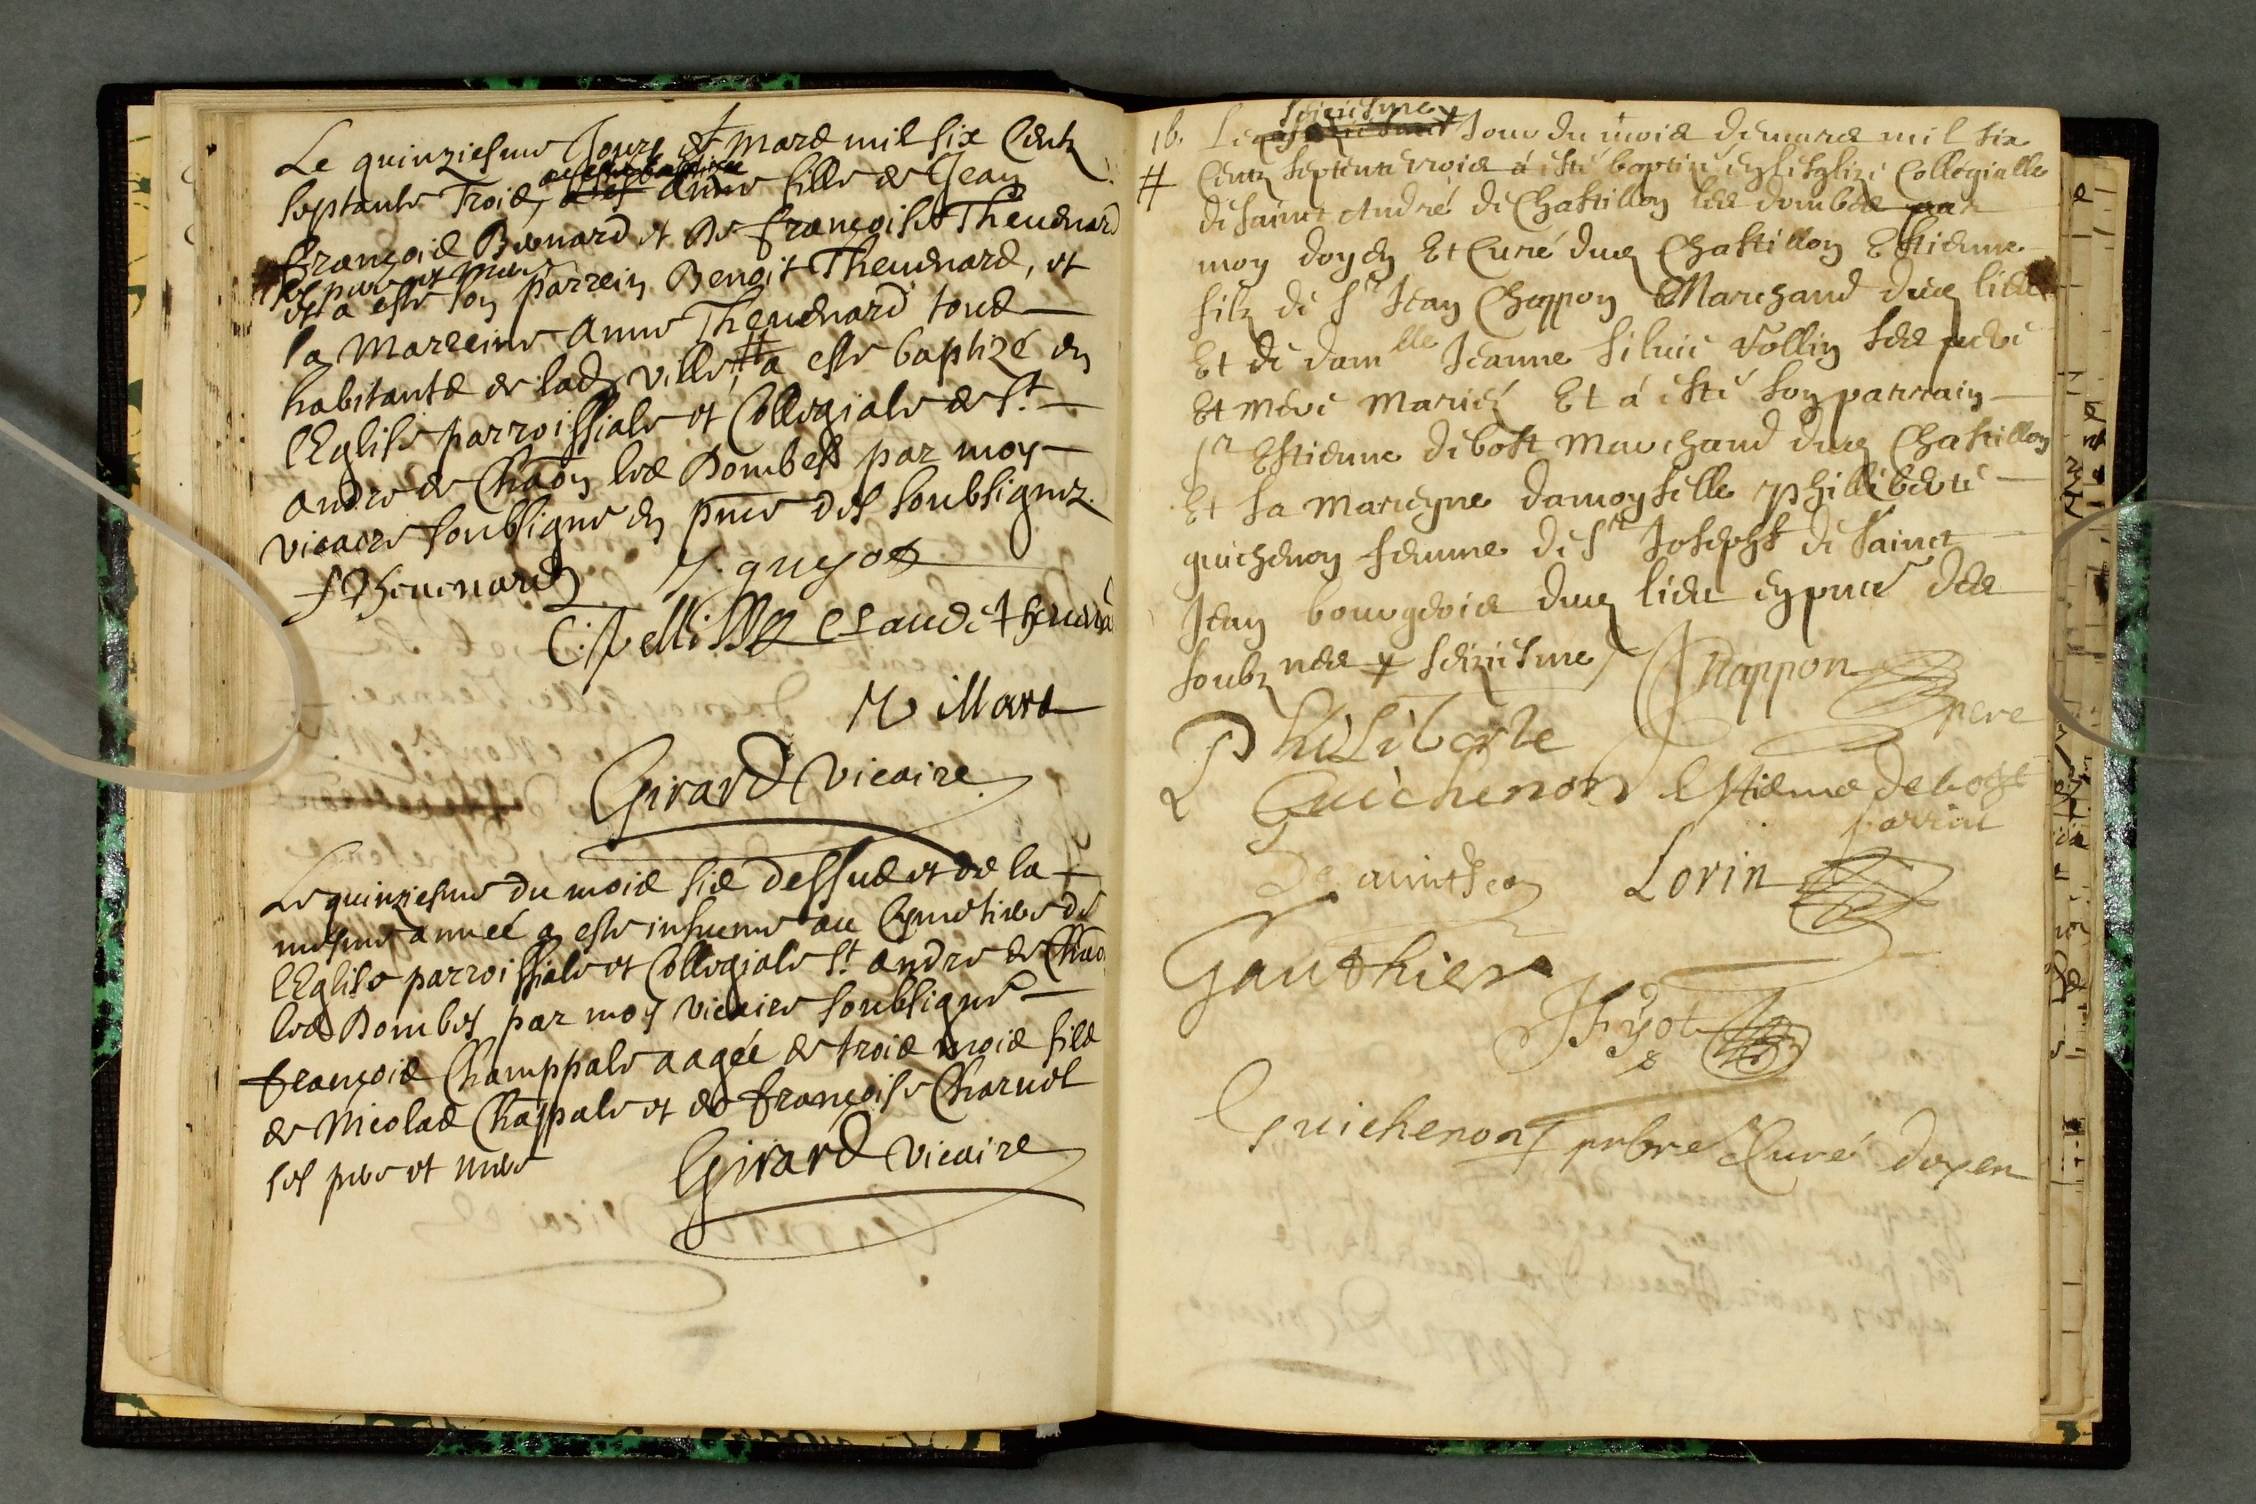 Le quinziesme Jour de Mars mil six Centz
septante Trois, Anne fille de Jean
François Bernard et De françoise Theuenard
ses pere et mere
et a esté son parrein Benoit Theuenard, et
sa Marreine Anne Theuenard tous
habitants de lad ville # a esté baptizé en
lEglise parroissiale et Collegiale de St
André de Chaōn les Dombes par moy
vicaire soubsigné en pnce des soubsignez
f Theuenard J. guyot
C. pellisson Claude theuena
M illard
Girard vicaire
Le quinziesme du mois sus dessus et de la
mesme année a esté inhumé au Cymetiere de
lEglise parroissiale et Collegiale St André de Chaōn
les Dombes par moy vicaire soubsigné
François Champpale aagée de trois mois fils
de Nicolas Chappale et de françoise Charuet
ses pere et mere Girard vicaire
seziesme
16. Le Jour du mois de mars mil six
# Centz septente trois à esté baptisé en lesglize Collegialle
de sainct André de Chastillon les dombes par
moy doyen Et Curé dud Chastillon Estienne
filz de Sr Jean Chappon Marchand dud lieu
Et de damlle Jeanne Siluie Vollin ses pere
Et mere mariés Et à esté son parrain
Sr Estienne debost marchand dud Chastillon
Et sa mareyne damoyselle philliberte
guichenon femme de Sr Joseph de sainct
Jean bourgeois dud lieu en pnce des
soubz nes + seiziesme
Chappon
pere
Philiberte
Guichenon Estienne Debost
parrin
De sainctJean Lorin
Gauthier
J Fyot
Guichenon prbre Curé doyen